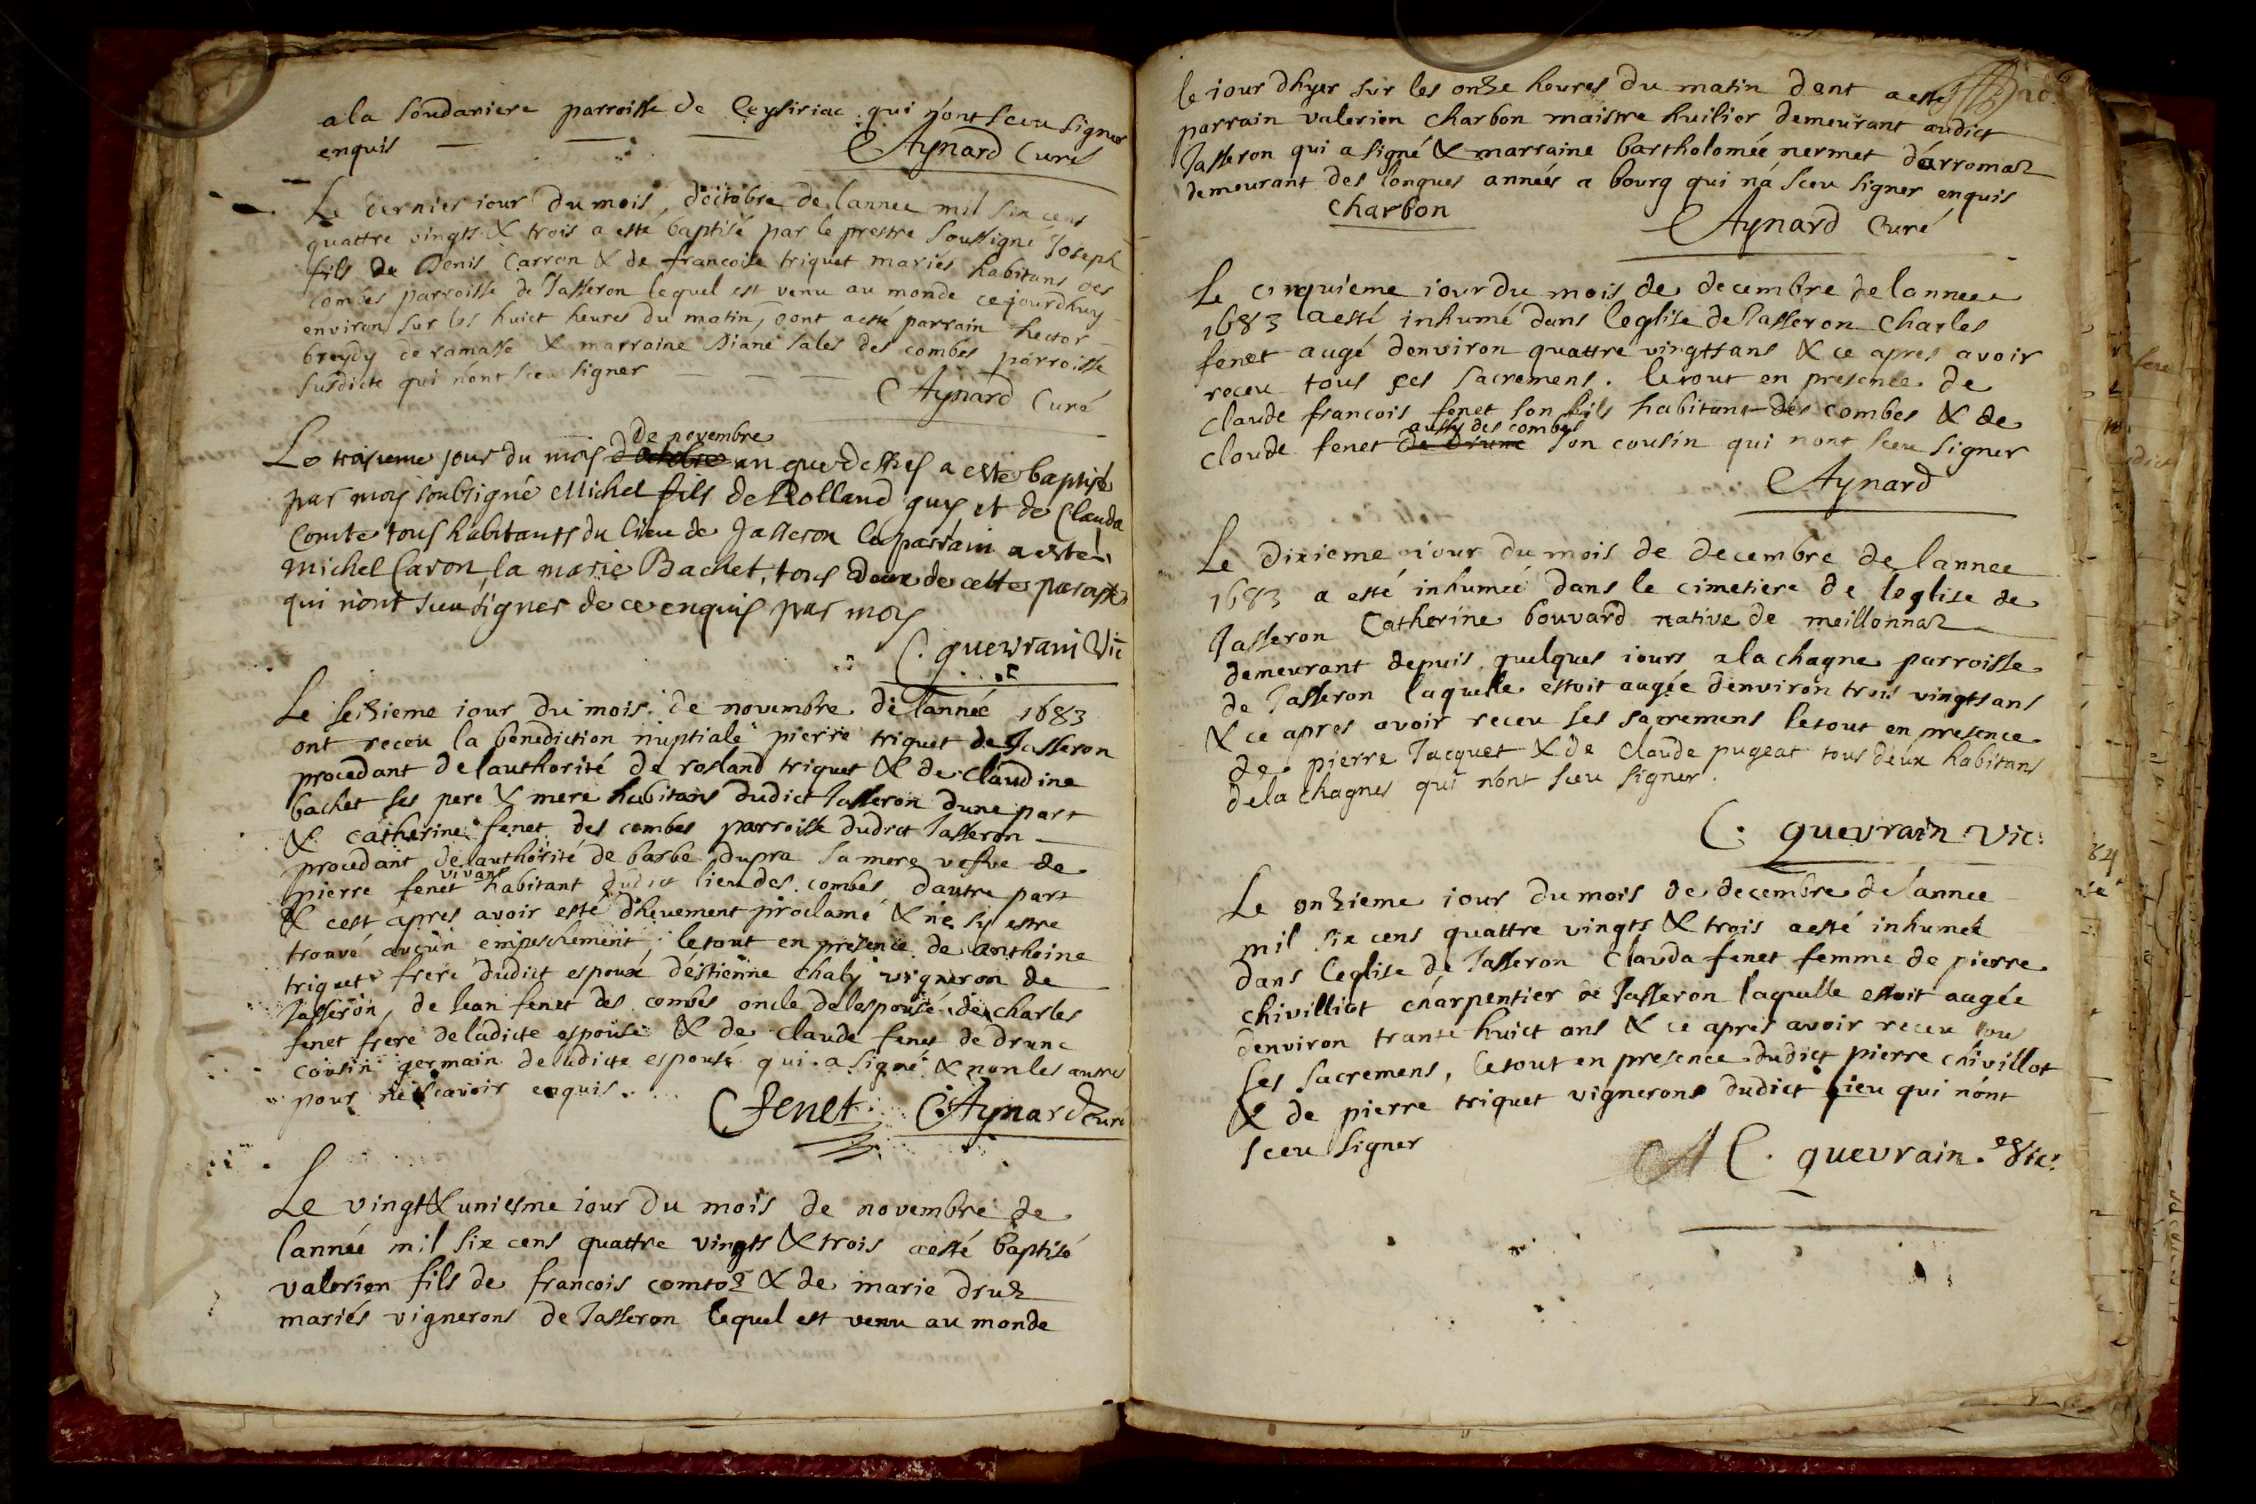 a la soudaniere parroisse de Ceysiriac qui nont sceu signer
enquis Aynard Curé
Le dernier iour du mois doctobre de lannee mil six cens
quattre vingts & trois a esté baptisé par le prestre soussigné Joseph
fils de Denis Carron & de francoise triquet mariés habitans des
combes parroisse de Jasseron lequel est venu au monde cejourdhuy
environ sur les huict heures du matin, dont a esté parrain hector
breydy de ramasse & marraine Diane sales des combes parroisse
susdicte qui nont sceu signer
Aynard Curé
de novembre
Le troisieme jour du mois doctobre an que dessus a esté baptisé
par moy soubsigné Michel fils de Rolland guy et de Clauda
Comte tous habitants du lieu de Jasseron le parrain a esté
Michel Caron, la marie Bachet, tous deux de cette paroisse
qui n'ont sceu signer de ce enquis par moy
C. quevrain Vic
Le seizieme iour du mois de novembre de lannée 1683
ont receu la benediction nuptiale pierre triquet de Jasseron
procedant de lauthorité de rosland triquet & de claudine
bachet ses pere & mere habitans dudict Jasseron dune part
& catherine fenet des combes parroisse dudict Jasseron
procedant de lauthorité de barbe dupra sa mere vefve de
vivant
pierre fenet habitant dudict lieu des combes dautre part
& cest apres avoir esté dheuement proclamé & ne sy estre
trouvé aucun empeschement, le tout en presence de anthoine
triquet frere dudict espoux déstienne chaby vigneron de
Jasseron, de Jean fenet des combes oncle de lespouse de charles
fenet frere de ladicte espouse & de claude fenet de drunc
cousin germain de ladicte espouse qui a signé & non les autres
pour ne scavoir enquis.
Cfenet Aynard Curé
Le vingt & uniesme iour du mois de novembre de
lannée mil six cens quattre vingts & trois a esté baptisé
valerien fils de francois comtoz & de marie druz
mariés vignerons de Jasseron lequel est venu au monde
le iour dhyer sur les onze heures du matin dont a esté
parrain valerien charbon maistre huilier demeurant audict
Jasseron qui a signé & marraine bartholomée nermet dárromaz
demeurant des longues années a bourg qui ná sceu signer enquis
charbon Aynard Curé
Le cinquieme iour du mois de decembre de lannee
1683 a esté inhumé dans leglise de Jasseron Charles
fenet augé denviron quattre vingts ans & ce apres avoir
receu tous ses sacremens. le tout en presence de
claude francois fenet son fils habitant des combes & de
aussy des combes
claude fenet de drunc son cousin qui nont sceu signer
Aynard
Le dixieme iour du mois de decembre de lannee
1683 a esté inhumée dans le cimetiere de leglise de
Jasseron Catherine bouvard native de meillonnaz
demeurant depuis quelques iours a la chagne parroisse
de Jasseron laquelle estoit augée denviron trois vingts ans
& ce apres avoir receu ses sacremens le tout en presence
de pierre Jacquet & de Claude pugeat tous deux habitans
de la chagne qui nónt sceu signer.
C. quevrain Vic:
Le onzieme iour du mois de decembre de lannee
mil six cens quattre vingts & trois a esté inhumee
dans leglise de Jasseron Clauda fenet femme de pierre
chivilliot chárpentier de Jasseron laquelle estoit augée
denviron trante huict ans & ce apres avoir receu tous
ses sacremens, le tout en presence dudict pierre chivillot
& de pierre triquet vignerons dudict lieu qui nónt
sceu signer
C. quevrain. Vic: